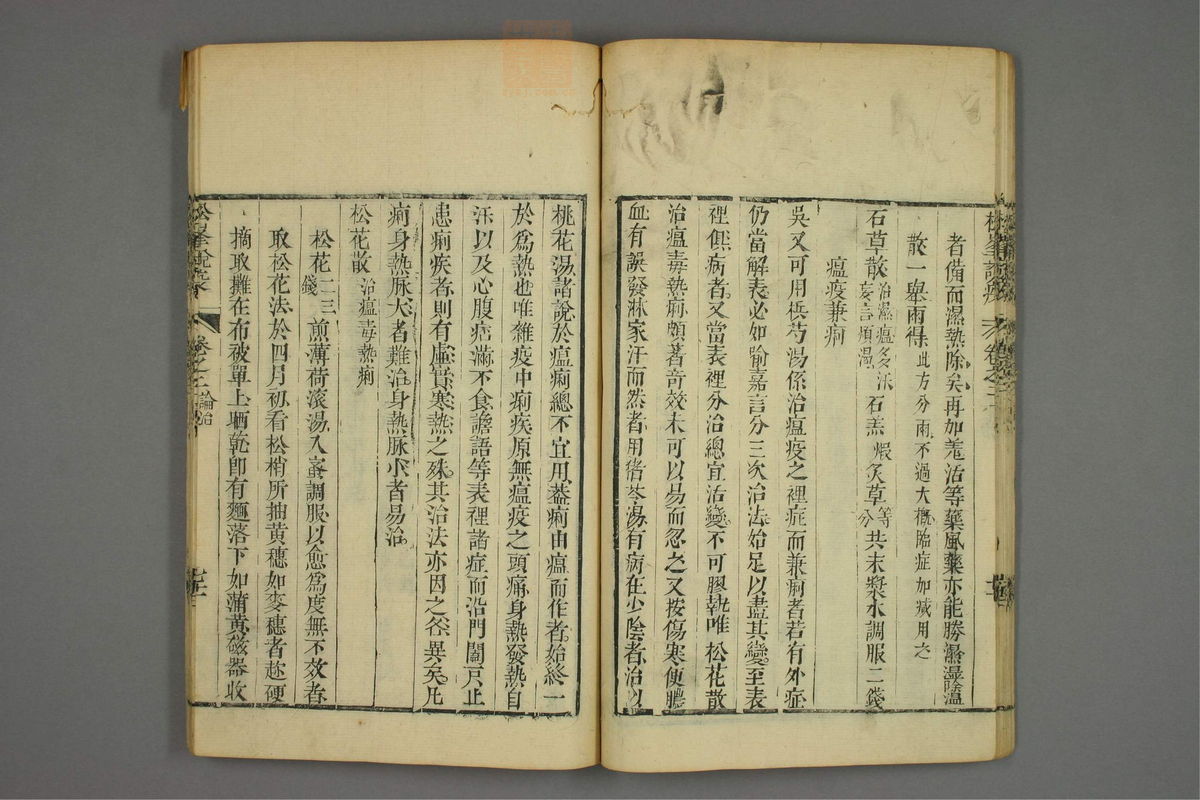 者備而濕熱除矣再加羗活等藥風藥亦能勝濕濕溫
散一舉兩得此方分兩不過大概臨症加減用之
石草散治濕瘟多汗妄言煩渴石羔煆炙草等分共末漿水調服二錢
瘟疫兼痢
吳又可用檳芍湯係治瘟疫之裡症而兼痢者若有外症
仍當解表必如喻嘉言分三次治法始足以盡其變至表
裡俱病者又當表裡分治總宜活變不可膠執唯松花散
治瘟毒熱痢頗著奇效未可以易而忽之又按傷寒便膿
血有誤發淋家汗而然者用猪苓湯有病在少陰者治以
桃花湯諸說於瘟痢總不宜用葢痢由瘟而作者始終一
於為熱也唯雜疫中痢疾原無瘟疫之頭痛身熱發熱自
汗以及心腹痞滿不食譫語等表裡諸症而沿門闔戶止
患痢疾者則有虛實寒熱之殊其治法亦因之各異矣凡
痢身熱脉大者難治身熱脉小者易治
松花散治瘟毒熱痢
松花二三錢煎薄荷滾湯入蜜調服以愈為度無不效者
取松花法於四月初看松梢所抽黃穗如麥穗者趂硬
摘取攤在布被單上晒乾即有麵落下如蒲黃磁器收
松峯說疫
卷之二
論治